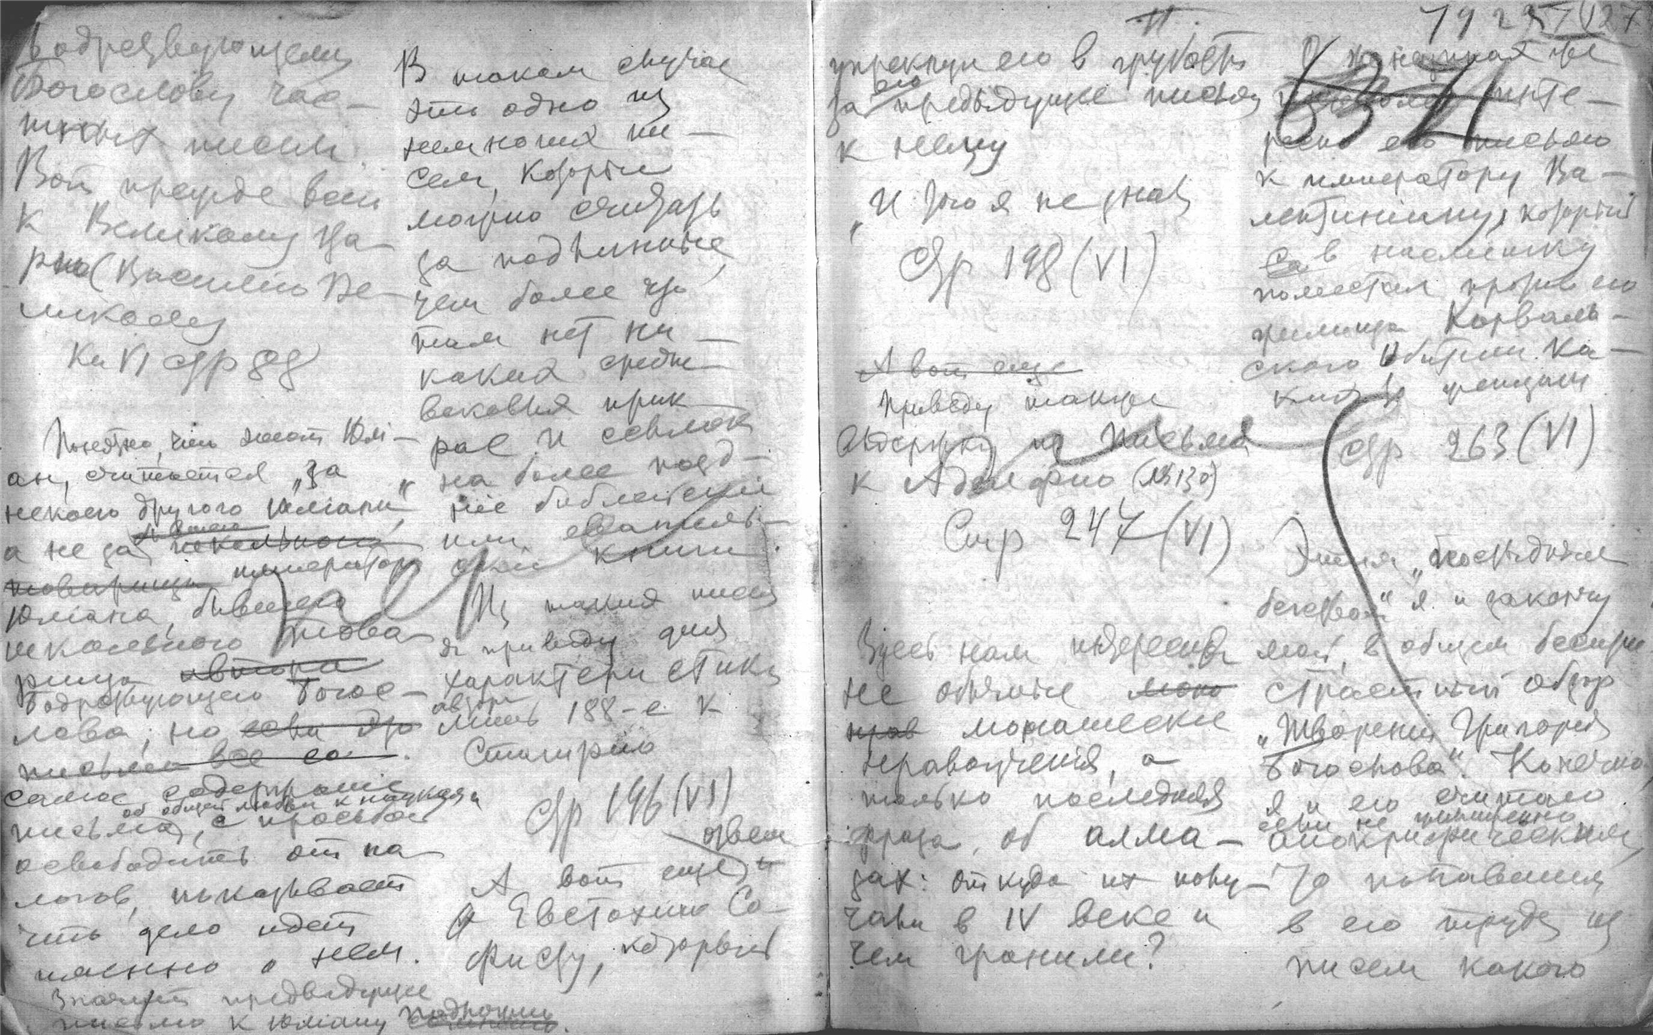 бодрствующему
Богослову час-
тных писем.
Вот прежде всего
к Великому Ца-
рю (Василию Ве-
ликому)
Кн VI стр 88
Понятно, что этот Юлі-
ан, считается „за
некоего другого Юліана“,
а не за
товарища императора
Юліана, бывшего
школьного това-
рища автора
бодрствующего Богос-
лова, но если это
письмо все са
самое содержание
об общей любви к наукам
письма, с просьбой
освободить от на-
логов, показывает
что дело идет
именно о нем.
Значит предыдущее
письмо к Юліану подложно.
В таком случае
это одно из
немногих пи-
сем, которые
можно считать
за подлинные,
тем более что
там нет ни-
каких средне-
вековых прик-
рас и ссылок
на более позд-
ние библейские
или евангель-
ские книги
Из таких писем
я приведу для
характеристики
автора
лишь 188-е к
Стагирию
Стр 196 (VI)
А вот еще ответ
Евстохию Со-
фисту, который
11
1925 VI 127
упрекнул его в грубости
за его предыдущие письма
к нему
„И того я не знал
Стр 198 (VI)
А вот еще
Приведу также
выдержку из Письма
к Аделфию (№ 130)
Стр 247 (VI)
Здесь нам интересны
не обычные
монашеские
нравоучения, а
только последняя
фраза об алма-
зах: откуда их полу-
чали в IV веке и
чем гранили?
63 71
инте-
ресно его письмо
к императору Ва-
лентиніану, который
в насмешку
поместил против его
жилища Карваль-
ского Обители Ка-
женщин
Стр 263 (VI)
Этим „последним
бегством“ я и закончу
мой, в общем беспри-
страстный обзор
„Творений Григорія
Богослова“. Конечно,
я и его считаю
если не целиком
апокрифическим,
То попавшия
в его труды из
писем какого